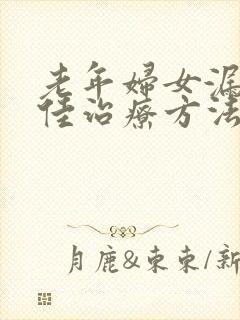 老年婦女漏
佳治療方法
月鹿&東東/新